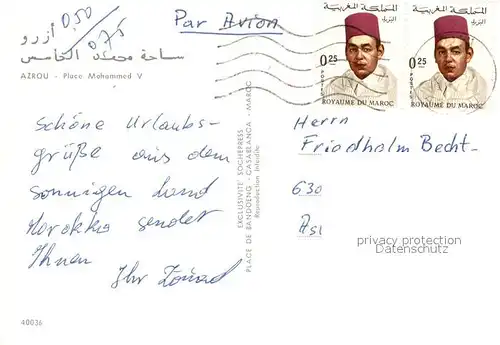 0,50
0,75
أزرو
ساحة محمد الخامس
AZROU - Place Mohammed V
Par Avion
المملكة المغربية
البريد
0.25
POSTES
ROYAUME DU MAROC
المملكة المغربية
البريد
0.25
ROYAUME DU MAROC
Schöne Urlaubs-
grüße aus dem
sonnigen Land
Marokko sendet
Ihnen
Ihr
EXCLUSIVITÉ SOCHEPRESS
PLACE DE BANDOENG - CASABLANCA - MAROC
Reproduction Interdite
Herrn
Friedholm Becht-
630
privacy protection
Datenschutz
40036